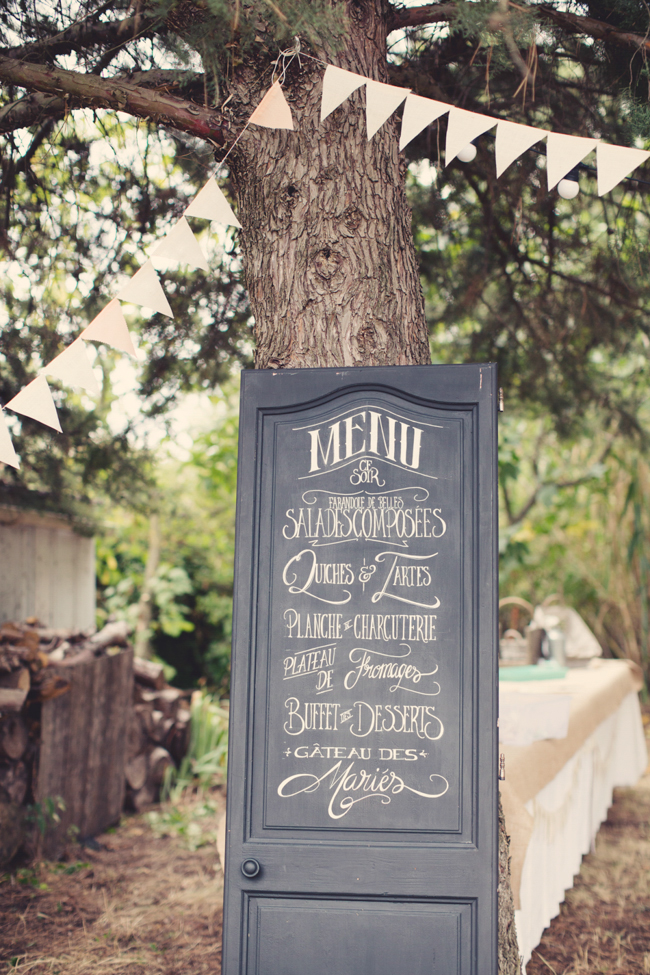 MENU
CE
SOIR
FARANDOLE DE BELLES
SALADES COMPOSÉES
QUICHES & TARTES
PLANCHE DE CHARCUTERIE
PLATEAU
DE FROMAGES
BUFFET DES DESSERTS
GÂTEAU DES
MARIÉS